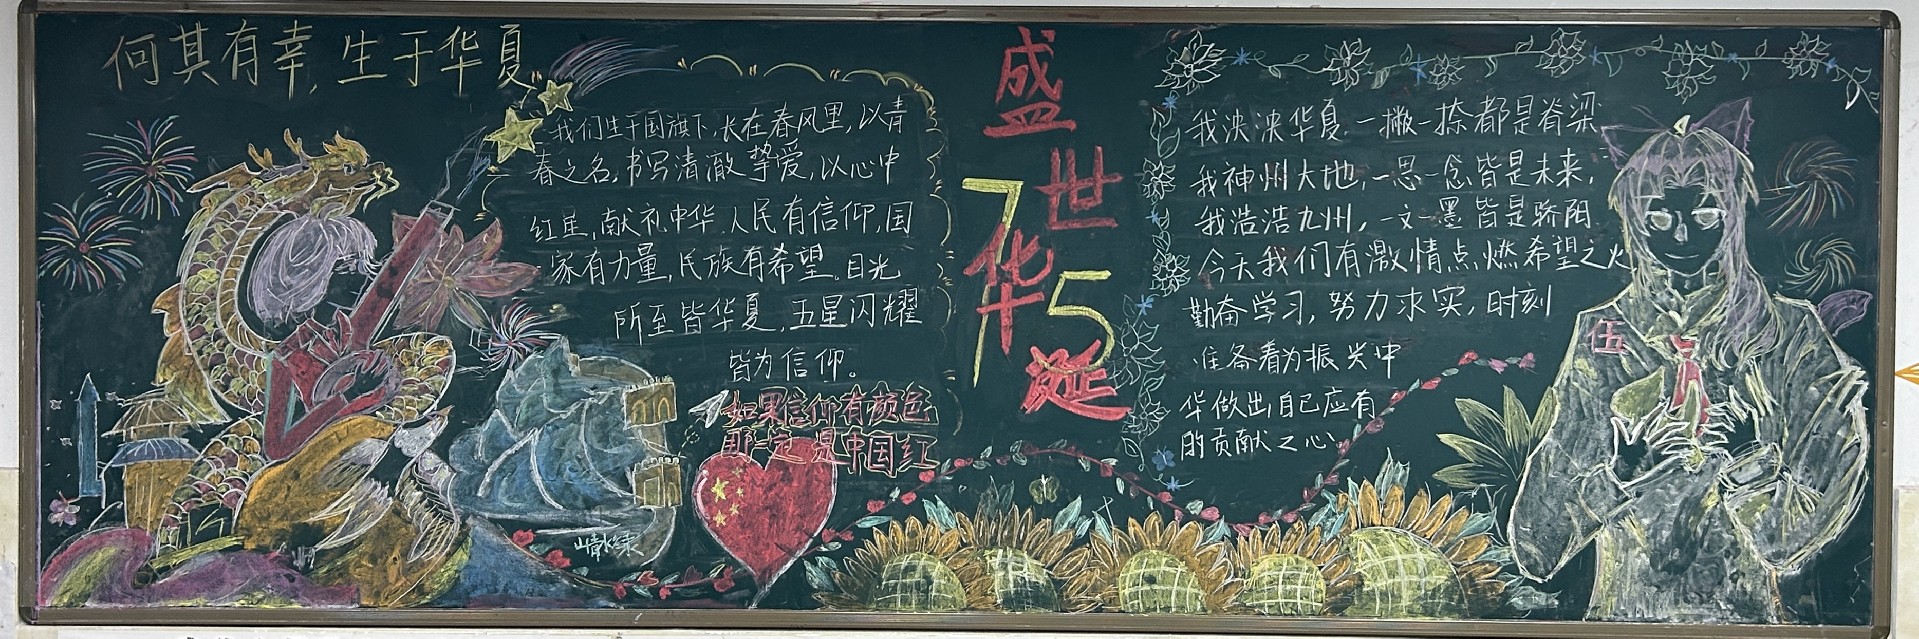 何其有幸，生于华夏
我们生于国旗下，长在春风里，以青
春之名，书写清澈挚爱，以心中
红星，献礼中华．人民有信仰，国
家有力量，民族有希望。目光
所至皆华夏，五星闪耀
皆为信仰。
如果信仰有颜色
那一定是中国红
山青水绿
盛世华诞
75
我泱泱华夏，一撇一捺都是脊梁
我神州大地，一思一念皆是未来，
我浩浩九州，一文一墨皆是骄阳
今天我们有激情点燃希望之火
勤奋学习，努力求实，时刻
准备着为振兴中
华做出自己应有
的贡献之心
伍